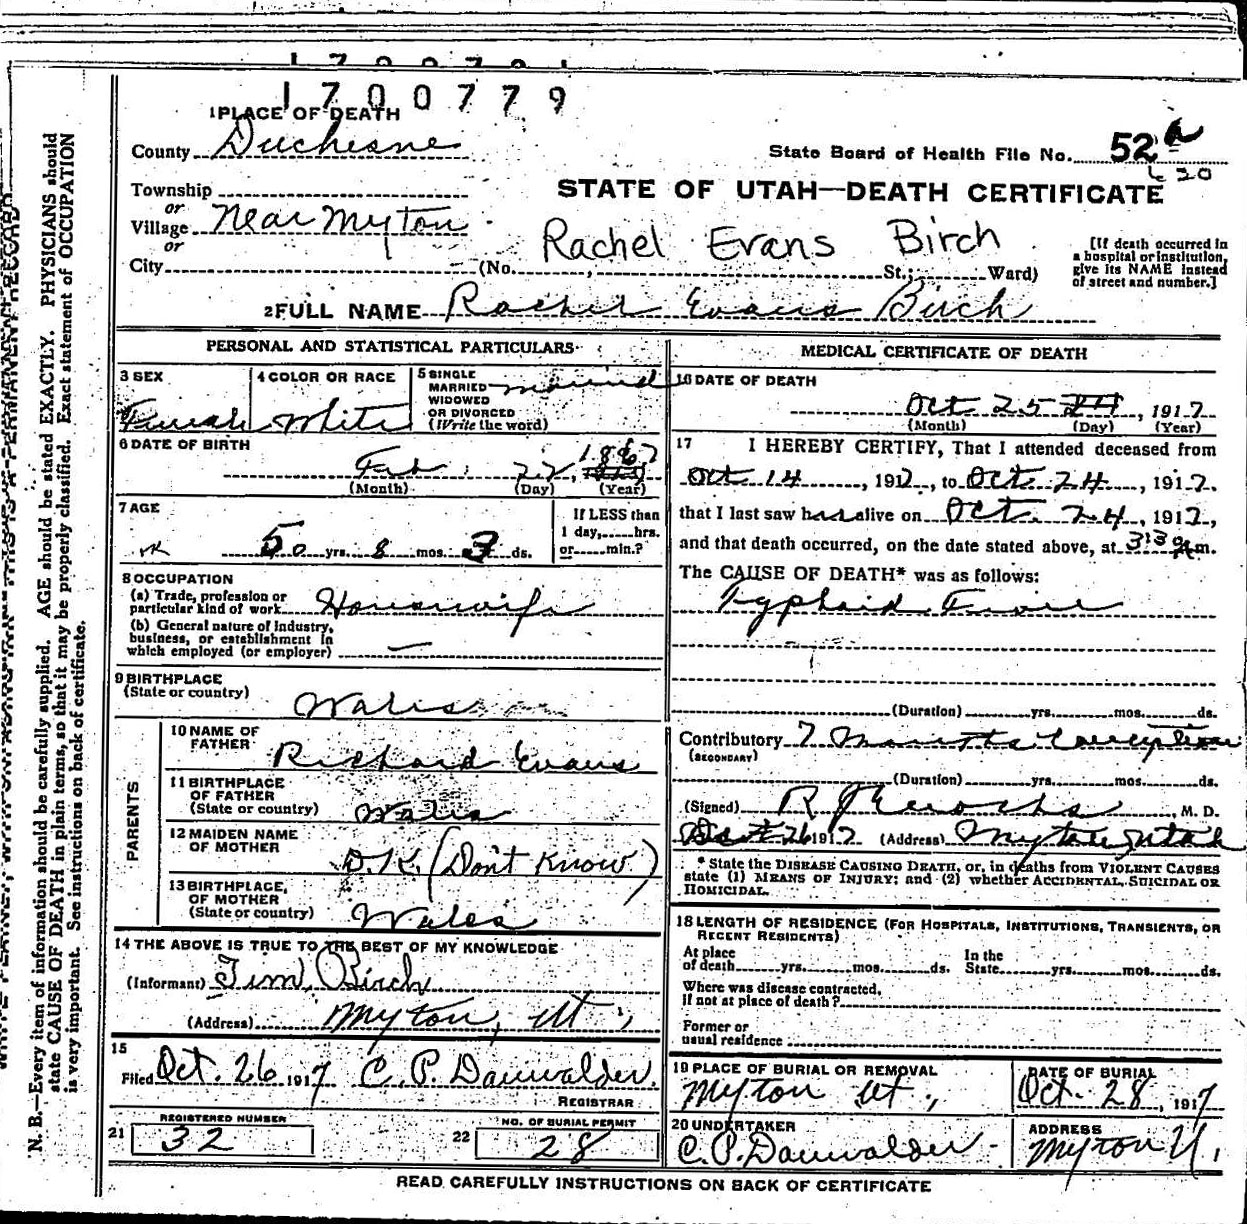 1700779
1 PLACE OF DEATH
County Duchesne
State Board of Health File No. 52 a
620
Township
or
Village Near Myton
or
City
STATE OF UTAH—DEATH CERTIFICATE
Rachel Evans Birch
(No. , St.; Ward)
[If death occurred in
a hospital or institution,
give its NAME instead
of street and number.]
2 FULL NAME Rachel Evans Birch
PERSONAL AND STATISTICAL PARTICULARS
3 SEX
Female
4 COLOR OR RACE
White
5 SINGLE
MARRIED
WIDOWED
OR DIVORCED
(Write the word)
married
6 DATE OF BIRTH
Feb. 22, 1867
(Month) (Day) (Year)
7 AGE
50 yrs. 8 mos. 3 ds.
If LESS than
1 day, hrs.
or min.?
8 OCCUPATION
(a) Trade, profession or
particular kind of work Housewife
(b) General nature of industry,
business, or establishment in
which employed (or employer) —
9 BIRTHPLACE
(State or country)
Wales
PARENTS
10 NAME OF
FATHER
Richard Evans
11 BIRTHPLACE
OF FATHER
(State or country) Wales
12 MAIDEN NAME
OF MOTHER
D.K. (Don't Know)
13 BIRTHPLACE,
OF MOTHER
(State or country) Wales
14 THE ABOVE IS TRUE TO THE BEST OF MY KNOWLEDGE
(Informant) Jim Birch
(Address) Myton, Ut.
15
Filed Oct. 26 1917 C. P. Dauwalder.
REGISTRAR
21
REGISTERED NUMBER
32
22
NO. OF BURIAL PERMIT
28
MEDICAL CERTIFICATE OF DEATH
16 DATE OF DEATH
Oct 25 24, 1917
(Month) (Day) (Year)
17 I HEREBY CERTIFY, That I attended deceased from
Oct 14, 1917, to Oct. 24, 1917.
that I last saw her alive on Oct. 24, 1917,
and that death occurred, on the date stated above, at 3:30 m.
The CAUSE OF DEATH* was as follows:
Typhoid Fever
(Duration) yrs. mos. ds.
Contributory 7 Months
(SECONDARY)
(Duration) yrs. mos. ds.
(Signed) R J Enochs M. D.
Oct 26 1917 (Address) Myton Utah
* State the DISEASE CAUSING DEATH, or, in deaths from VIOLENT CAUSES
state (1) MEANS OF INJURY; and (2) whether ACCIDENTAL, SUICIDAL OR
HOMICIDAL.
18 LENGTH OF RESIDENCE (FOR HOSPITALS, INSTITUTIONS, TRANSIENTS, OR
RECENT RESIDENTS)
At place
of death yrs. mos. ds.
In the
State yrs. mos. ds.
Where was disease contracted,
if not at place of death?
Former or
usual residence
19 PLACE OF BURIAL OR REMOVAL
Myton Ut.,
DATE OF BURIAL
Oct. 28, 1917
20 UNDERTAKER
C. P. Dauwalder
ADDRESS
Myton U.
READ CAREFULLY INSTRUCTIONS ON BACK OF CERTIFICATE
N. B.—Every item of information should be carefully supplied. AGE should be stated EXACTLY. PHYSICIANS should
state CAUSE OF DEATH in plain terms, so that it may be properly classified. Exact statement of OCCUPATION
is very important. See instructions on back of certificate.